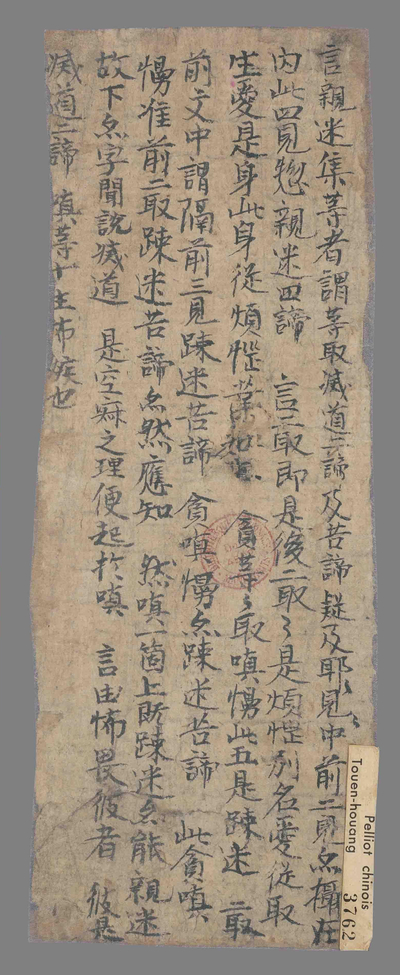 言親迷集等者謂等取滅道二諦及苦諦疑及耶見〻中前二見亦攝在
內此四見惣親迷四諦 言二取即是後二取〻是煩惱別名愛從取
生愛是身此身從煩惱業如 貪等〻取嗔慢此五是踈迷 二取
前文中謂隔前三見踈迷苦諦 貪嗔慢亦踈迷苦諦 此貪嗔
慢准前二取踈迷苦諦亦然應知 然嗔一箇上既踈迷亦能親迷
故下亦字聞說滅道 是空寂之理便起於嗔 言由怖畏彼者 彼是
滅道二諦 嗔等十生怖疾也
Pelliot chinois
Touen-houang
3762